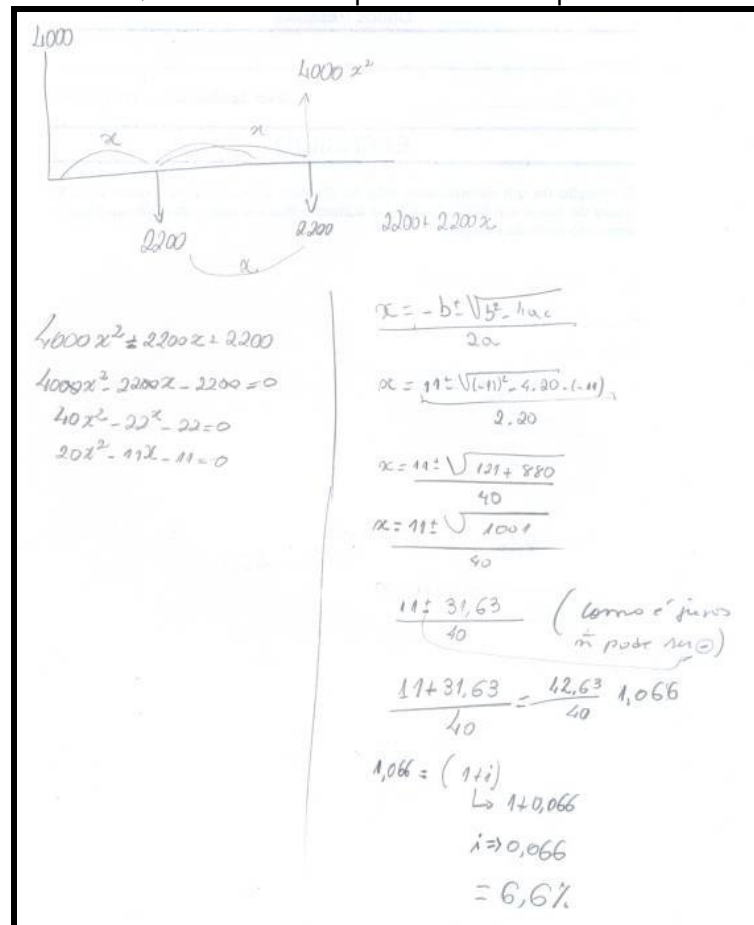 4000
4000 x²
x
x
2200
2200
2200+2200x
x
4000x² = 2200x + 2200
4000x² - 2200x - 2200 = 0
40x² - 22x - 22 = 0
20x² - 11x - 11 = 0
x = -b ± √b² - 4ac
2a
x = 11 ± √(-11)² - 4.20.(-11)
2.20
x = 11 ± √121 + 880
40
x = 11 ± √1001
40
11 ± 31,63
40
(como é juros
ñ pode ser ⊖)
11+31,63 = 42,63 1,066
40 40
1,066 = (1+i)
↳ 1+0,066
i => 0,066
= 6,6%